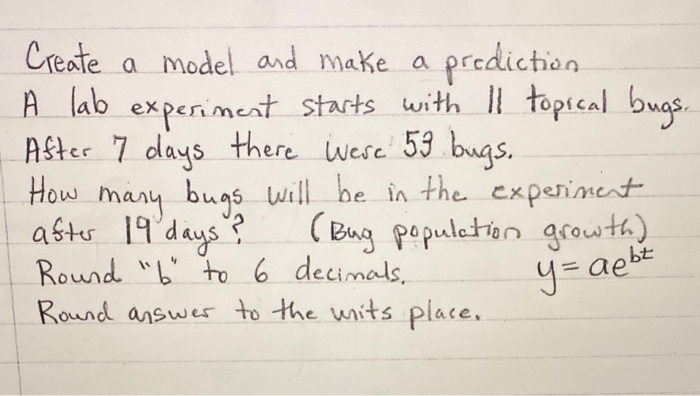 Create a model and make a prediction
A lab experiment starts with 11 topical bugs.
After 7 days there were 53 bugs.
How many bugs will be in the experiment
after 19 days? (Bug population growth)
Round "b" to 6 decimals. y = ae^bt
Round answer to the units place.